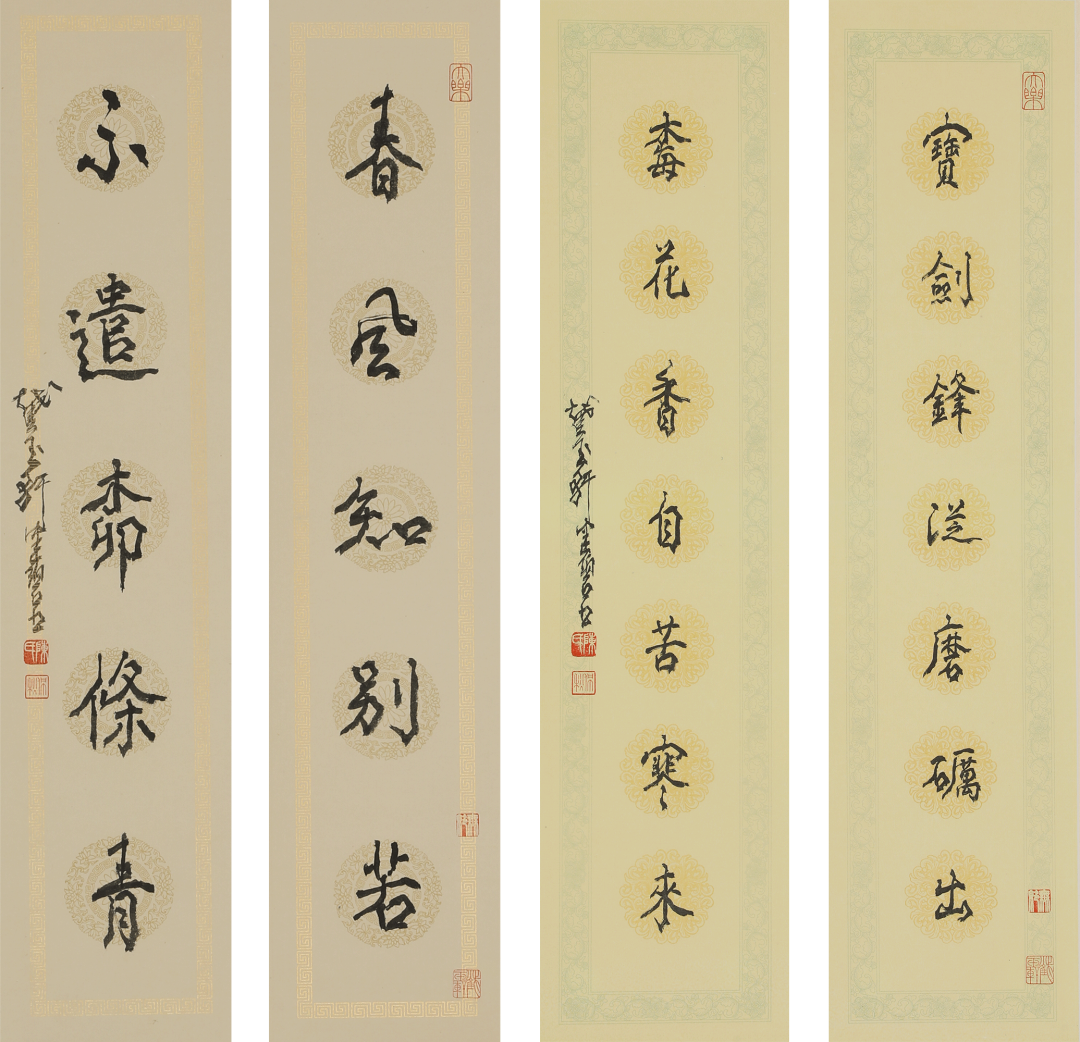 寶劍鋒從磨礪出
梅花香自苦寒來
春風知別苦
不遣柳條青